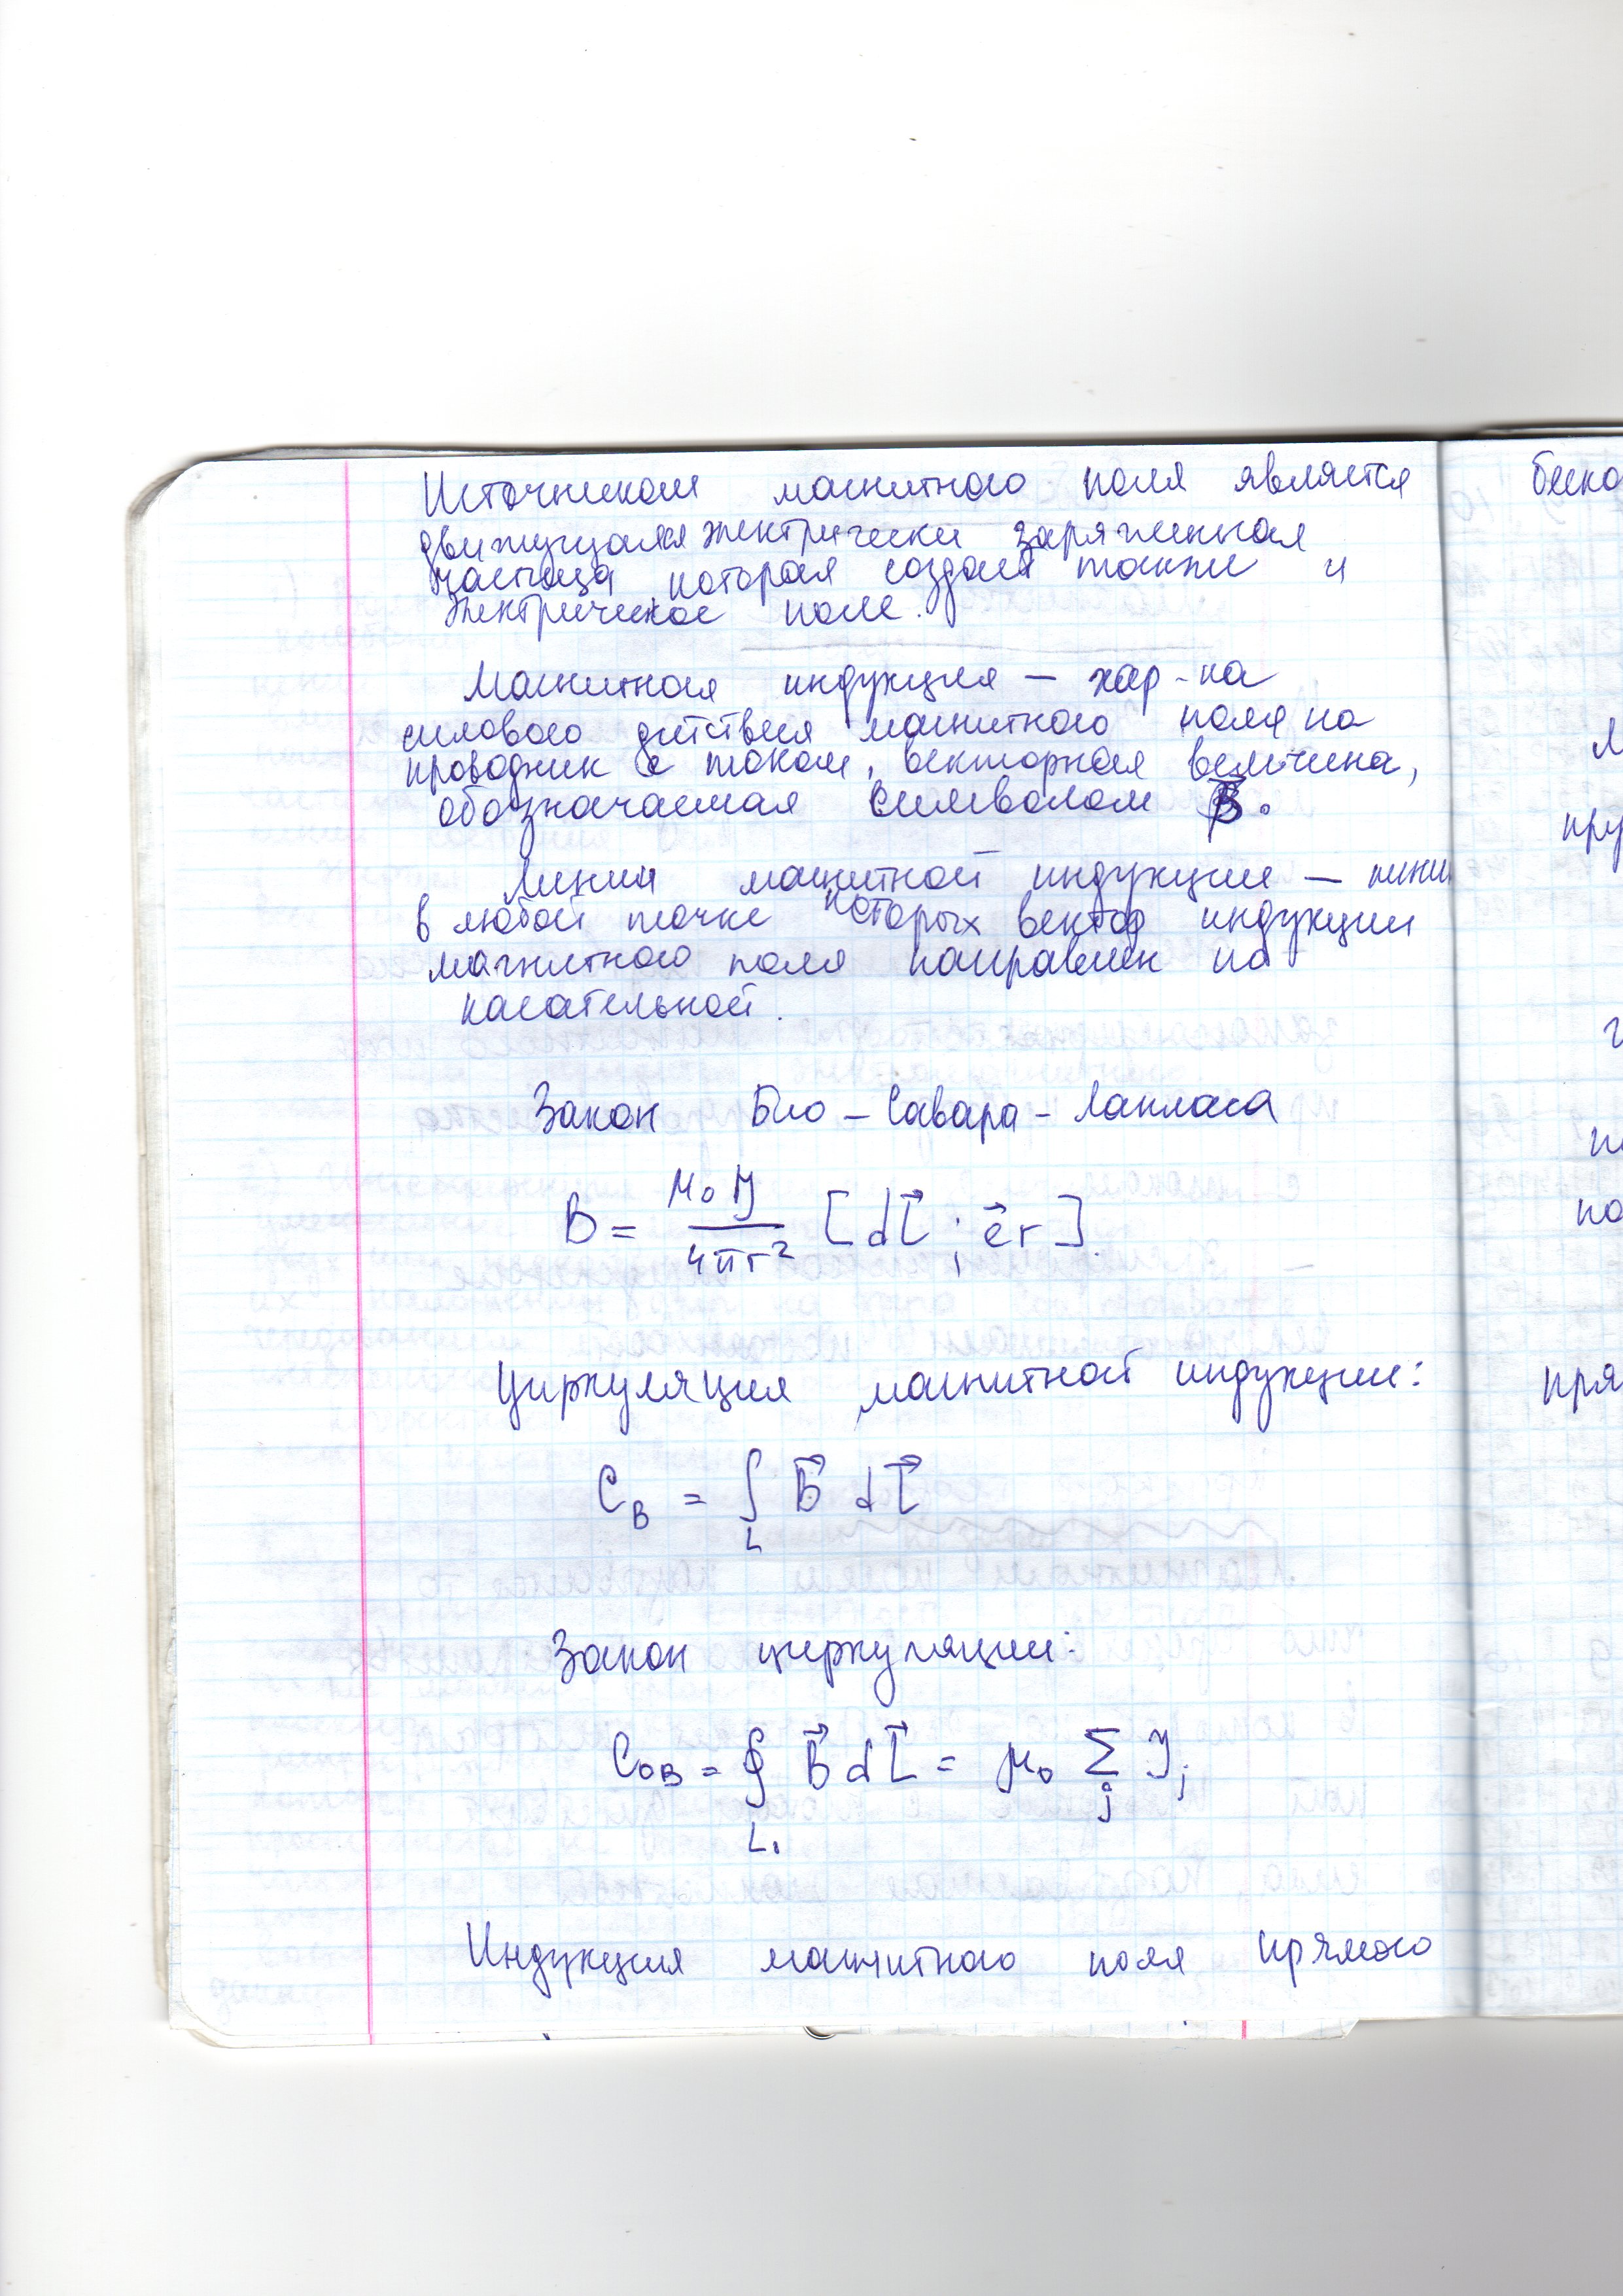 Источником магнитного поля является
движущаяся электрически заряженная
частица которая создаёт также и
электрическое поле.
Магнитная индукция – хар-ка
силового действия магнитного поля на
проводник с током, векторная величина,
обозначаемая символом B⃗.
Линии магнитной индукции – лини
в любой точке которых вектор индукции
магнитного поля направлен по
касательной.
Закон Био – Савара – Лапласа
B = μ₀ J / 4πr² [dl⃗ ; e⃗r].
Циркуляция магнитной индукции:
C_B = ∫_L B⃗ dl⃗
Закон циркуляции:
C₀B = ∮_L₁ B⃗ dl⃗ = μ₀ Σ_j J_j
Индукция магнитного поля прямого
беско
пру
по
пря